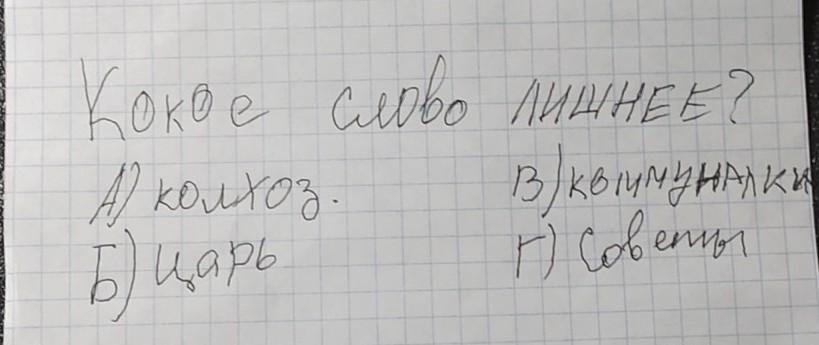 Кокое слово ЛИШНЕЕ?
А) колхоз.
В) коммуналки
Б) царь
Г) Советы